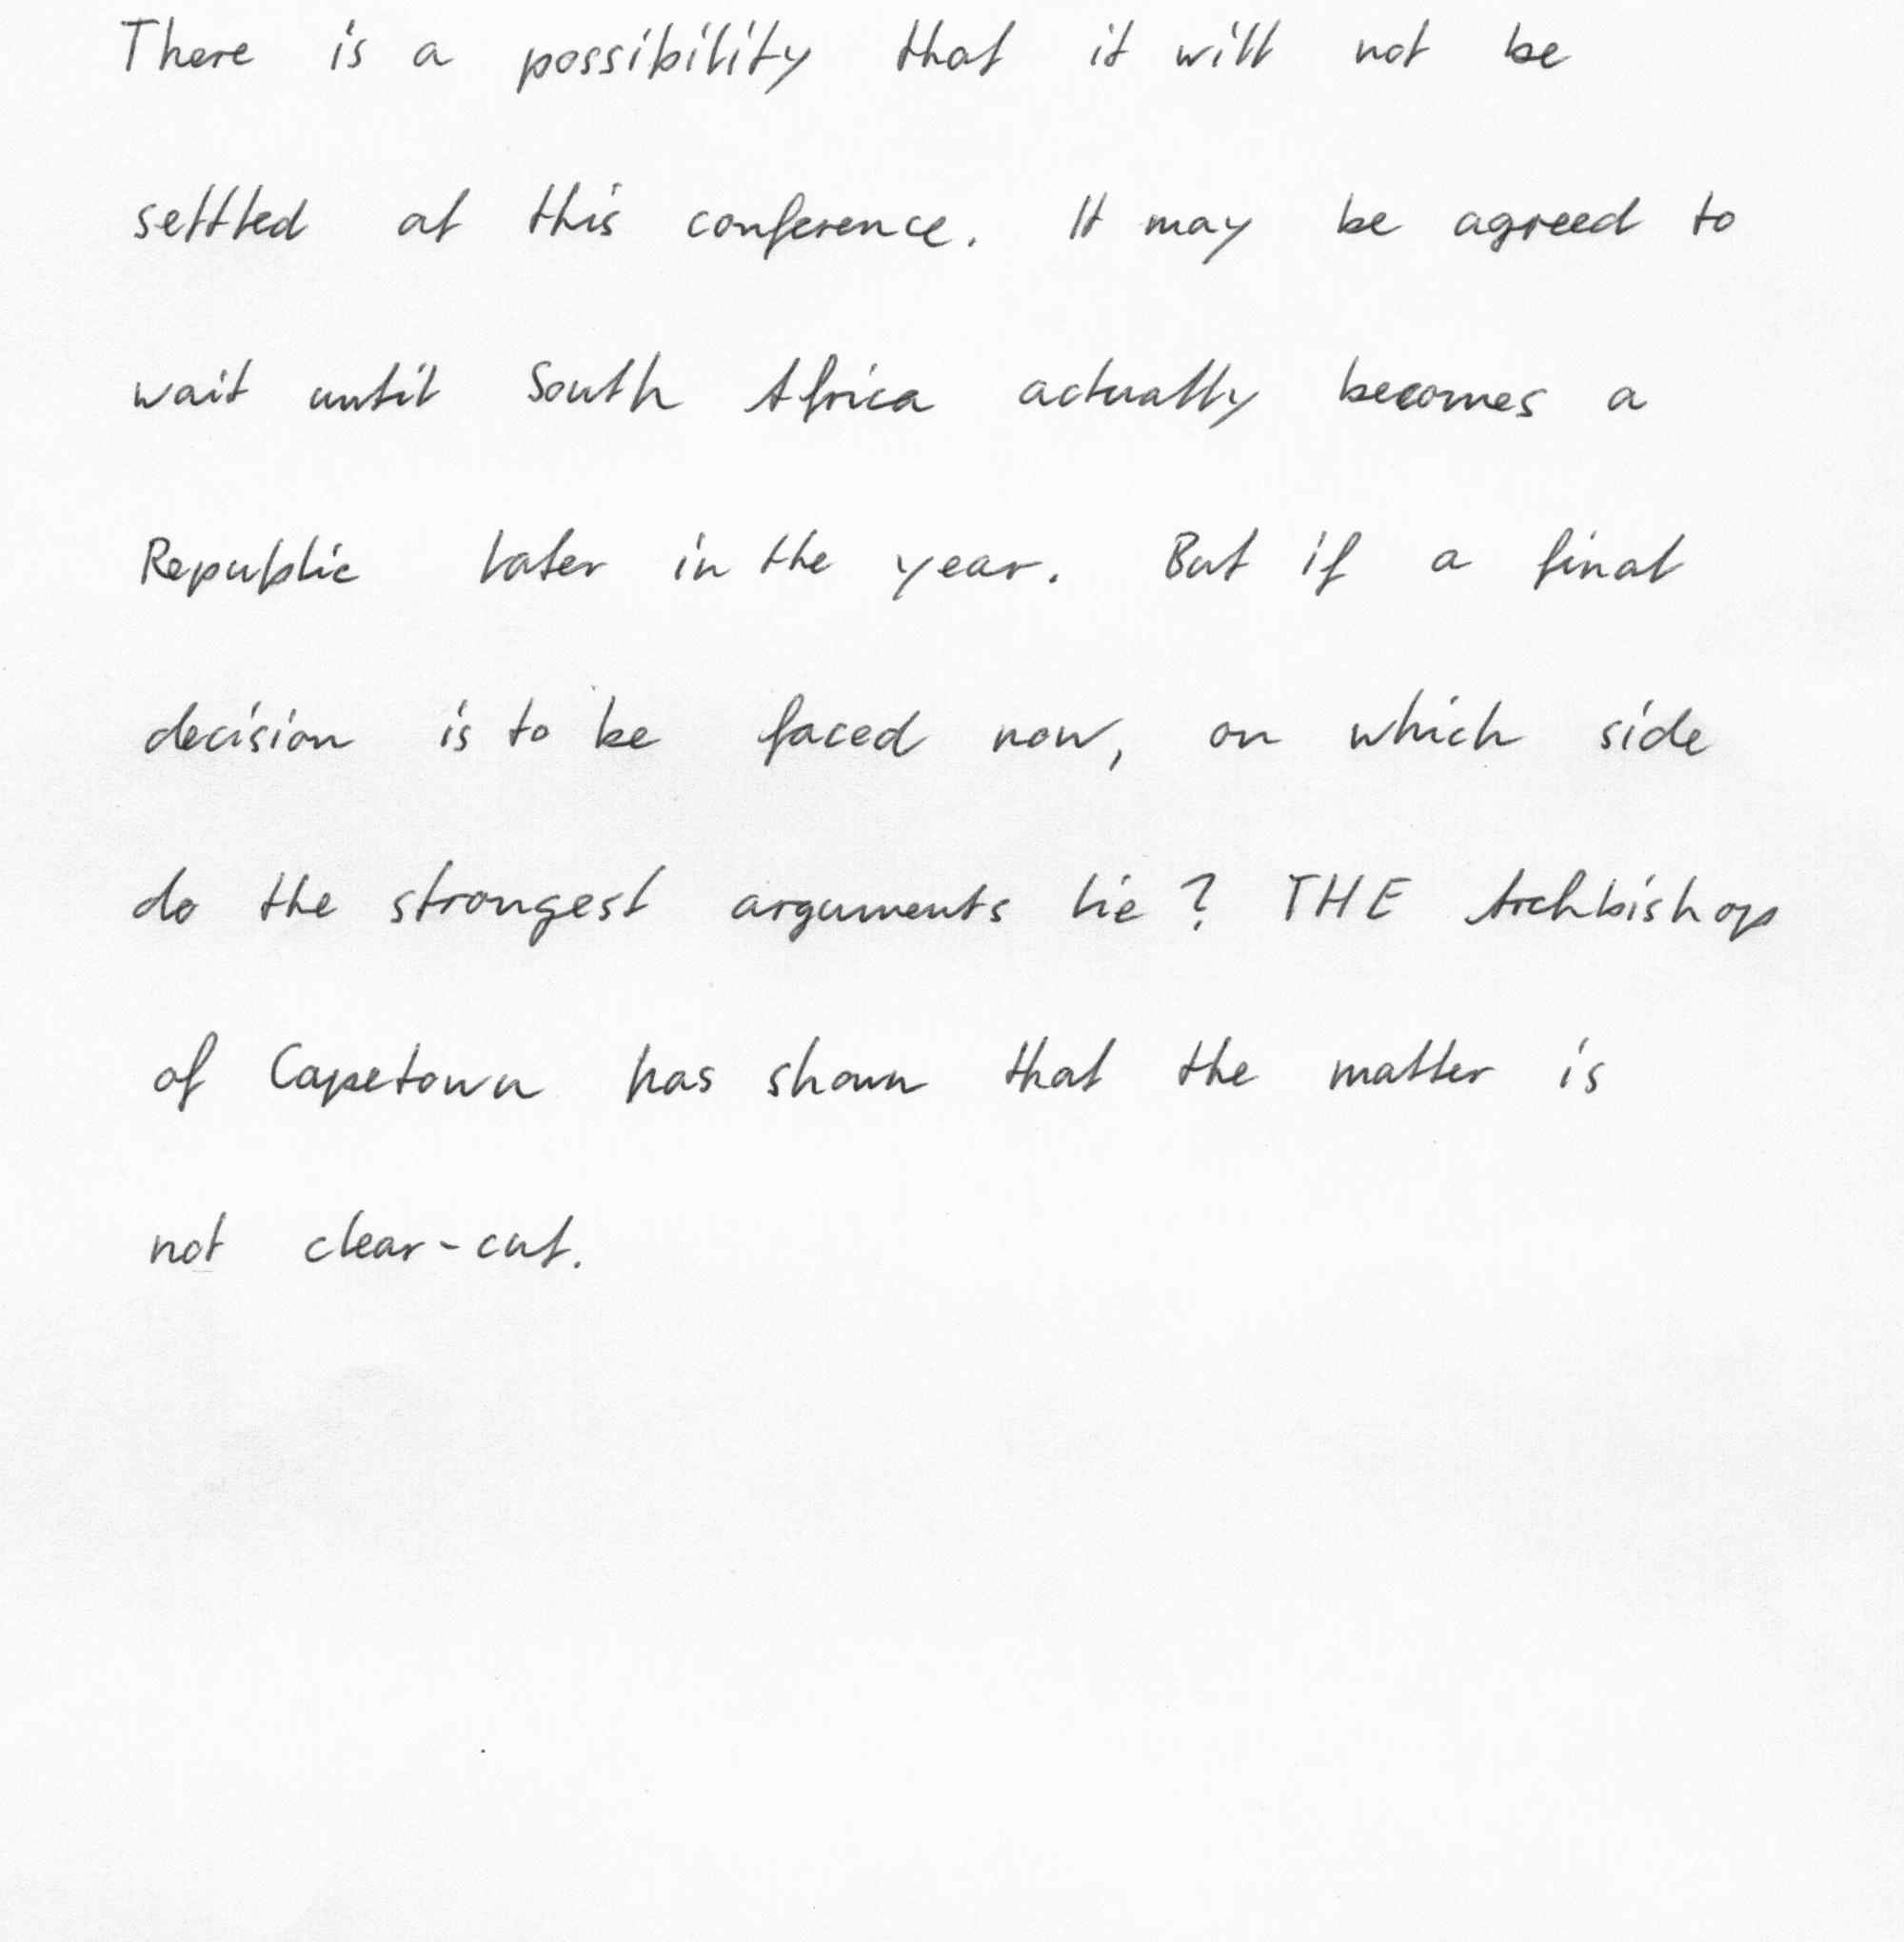 There is a possibility that it will not be
settled at this conference. It may be agreed to
wait until South Africa actually becomes a
Republic later in the year. But if a final
decision is to be faced now, on which side
do the strongest arguments lie? THE Archbishop
of Capetown has shown that the matter is
not clear-cut.